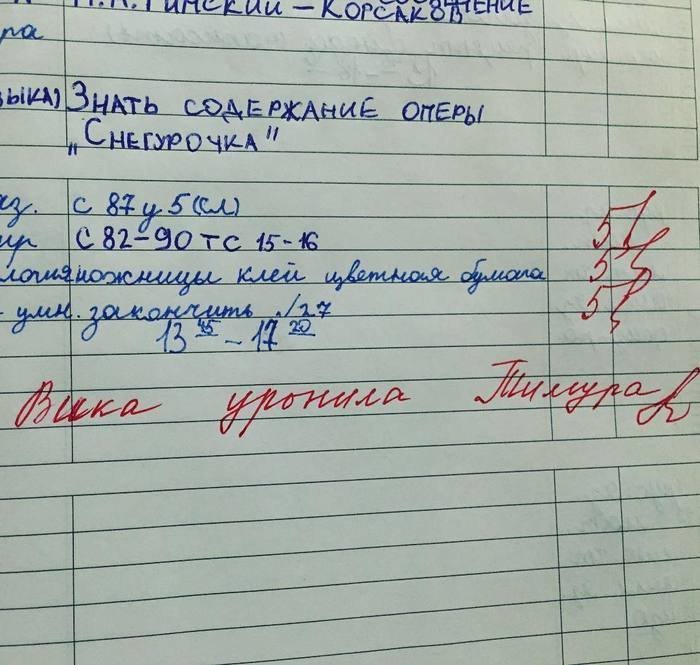 Н.А. РИМСКИЙ – КОРСАКОВ
ра
ЗНАТЬ СОДЕРЖАНИЕ ОПЕРЫ
„СНЕГУРОЧКА"
с 87 у 5 (сл) 5
С 82-90 ТС 15-16 5
ножницы клей цветная бумага 5
умн. закончить 1/27
13 45 – 17 20
Вика уронила Тимура